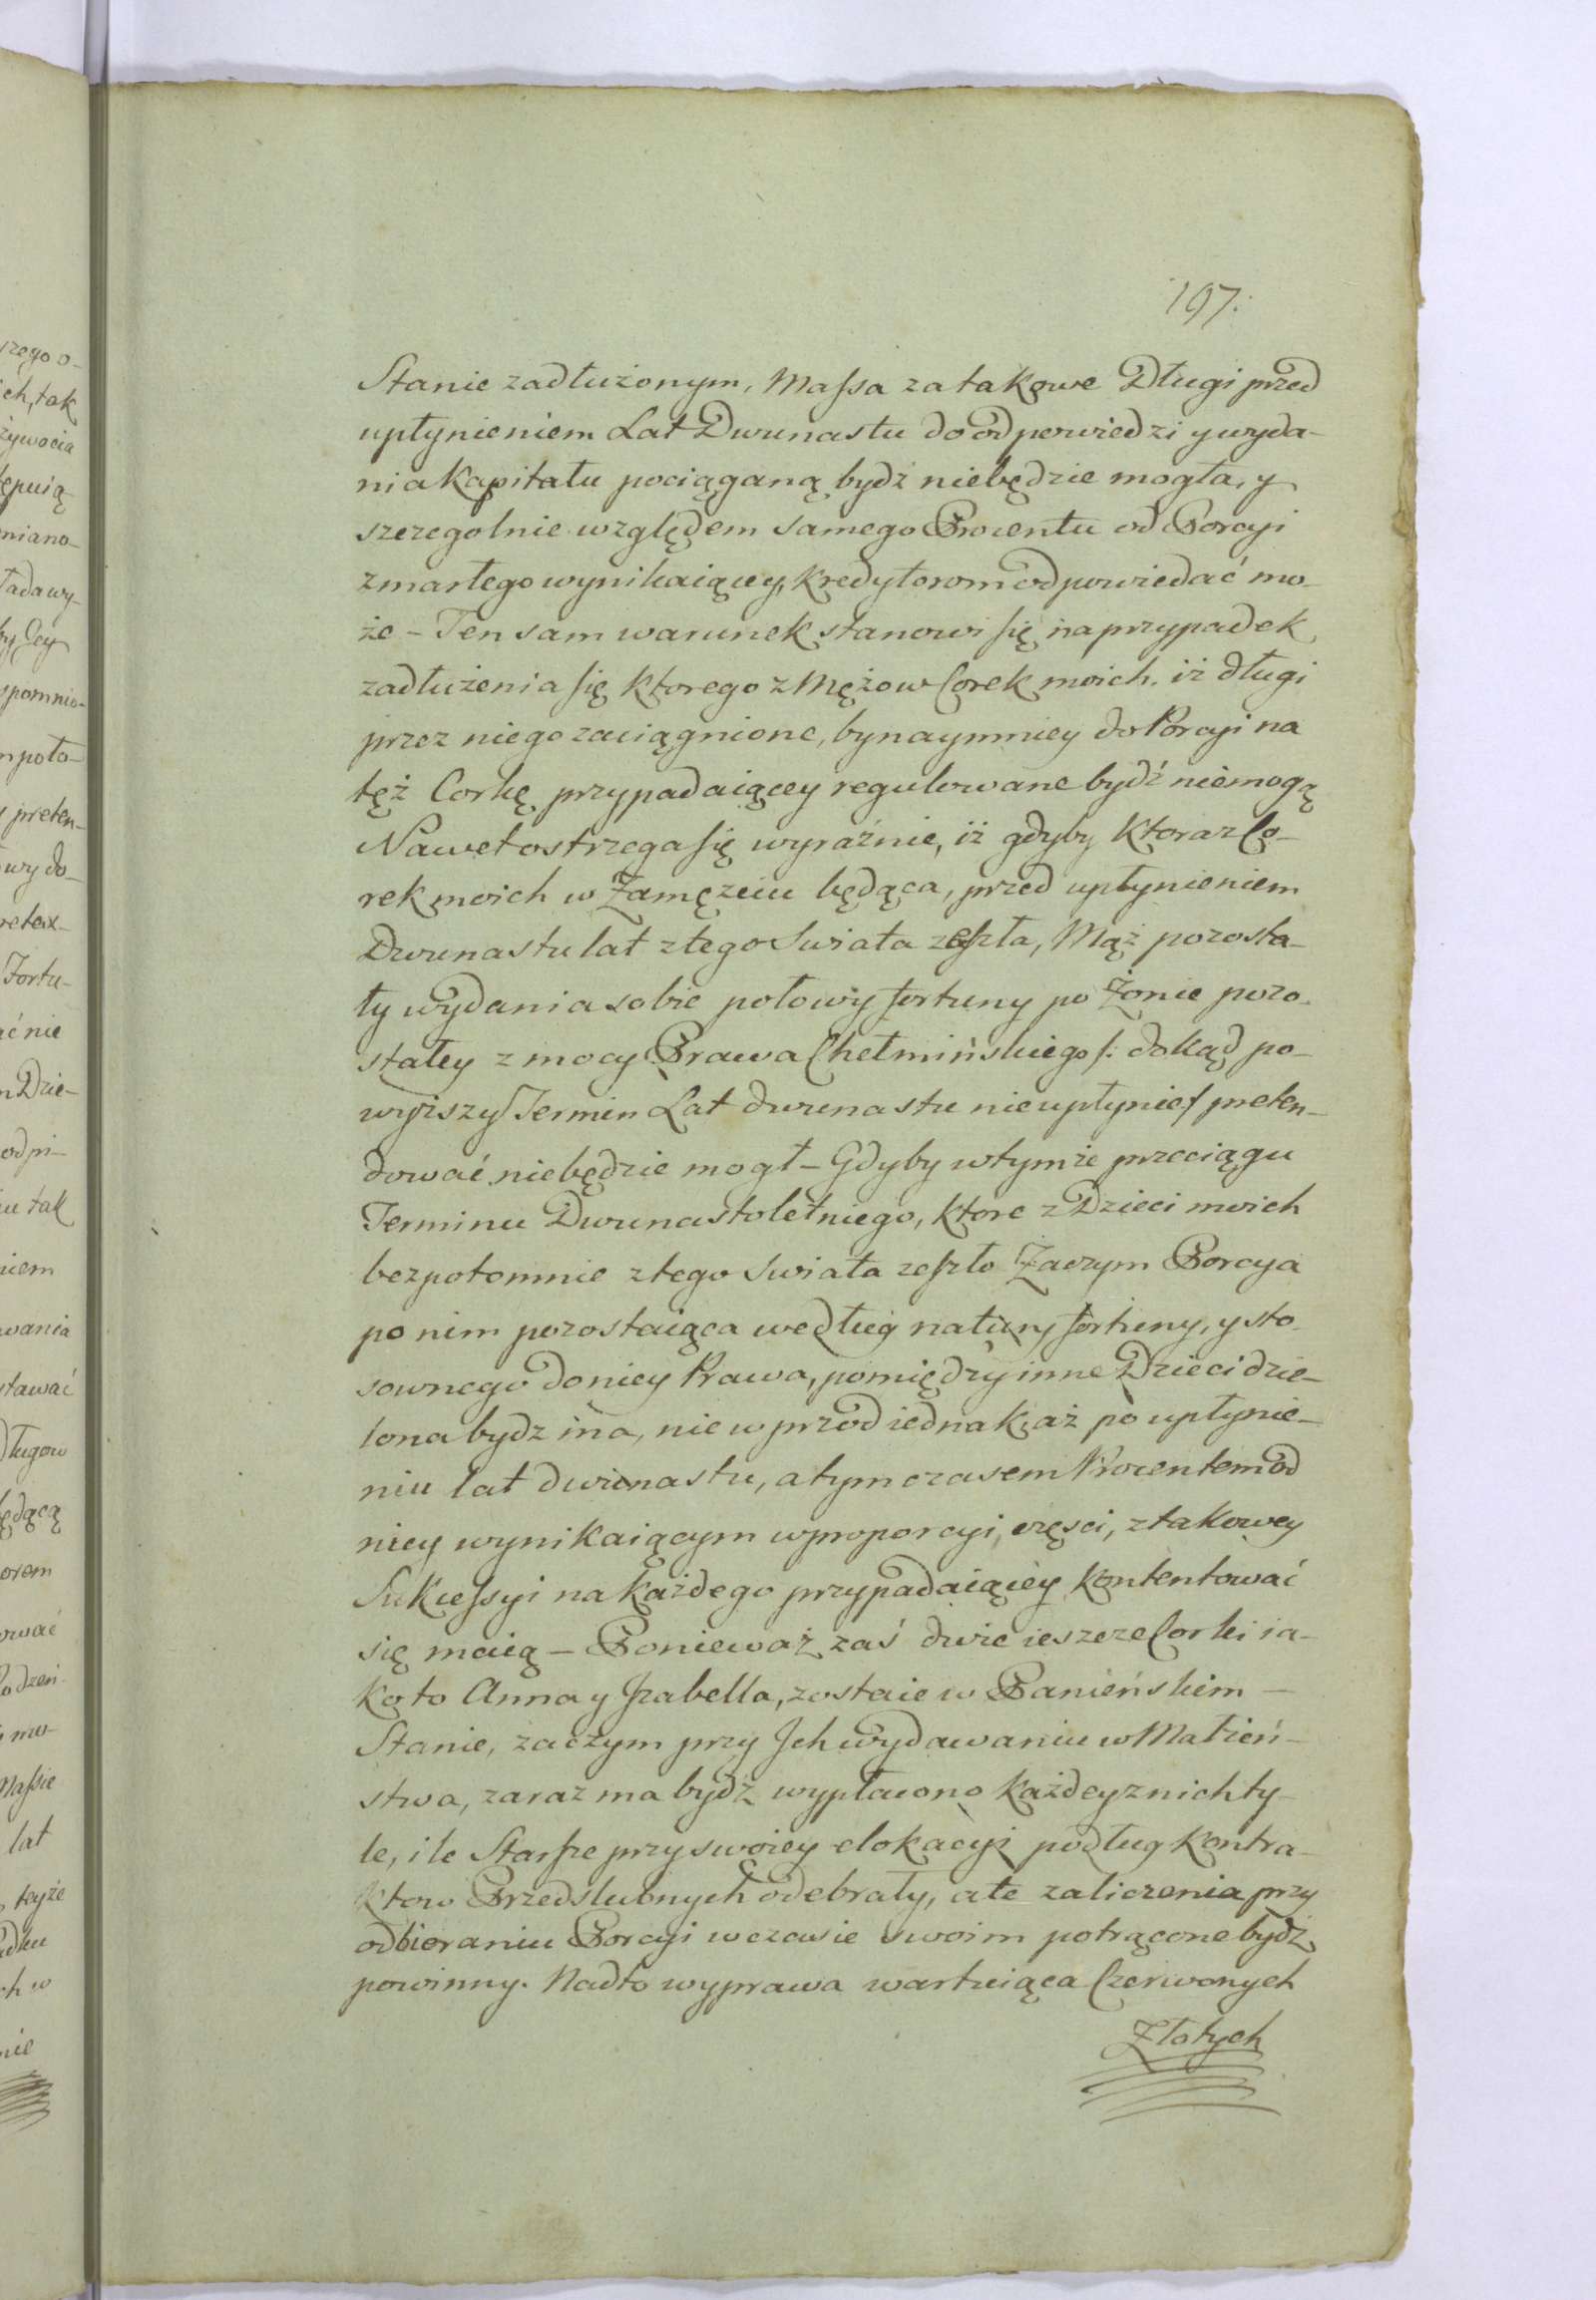 197.
Stanie zadłużonym, Massa za takowe Długi przed
upłynieniem Lat Dwunastu do odpowiedzi y wyda-
nia Kapitału pociąganą bydź niebędzie mogła, y
szczegolnie względem samego Procentu od Porcyi
zmarłego wynikaiącey, kredytorom odpowiedać mo-
że – Ten sam warunek stanowi się na przypadek
zadłużenia się ktorego z Mężow Corek moich, iż długi
przez niego zaciągnione, bynaymniey do Porcyi na
tęż Corkę przypadaiącey regulowane bydź niemogą
Nawet ostrzega się wyraźnie, iż gdyby ktora z Co-
rek moich w Zamęzciu będąca, przed upłynieniem
Dwunastu lat z tego Swiata zeszła, Mąż pozosta-
ły wydania sobie połowy fortuny po Żonie pozo-
stałey z mocy Prawa Chełmińskiego /: dokąd po-
wyższy Termin Lat dwunastu nie upłynie/ preten-
dować niebędzie mogł – Gdyby w tymże przeciągu
Terminu Dwunastoletniego, ktore z Dzieci moich
bezpotomnie z tego Swiata zeszło Zaczym Porcya
po nim pozostaiąca według natury fortuny, y sto-
sownego do niey Prawa, pomiędzy inne Dzieci dzie-
lona bydz ma, nie wprzod iednak, aż po upłynie-
niu lat dwunastu, a tym czasem Procentem od
niey wynikaiącym w proporcyi, części, z takowey
Sukcessyi na każdego przypadaiącey kontentować
się maią – Ponieważ zaś dwie ieszcze Corki ia-
ko to Anna y Izabella, zostaie w Panieńskim –
Stanie, zaczym przy Ich wydawaniu w Małżeń-
stwa, zaraz ma bydź wypłacono każdey z nich ty-
le, ile Starsze przy swoiey elokacyi podług kontra-
ktow Przedslubnych odebrały, a te zaliczenia przy
odbieraniu Porcyi w czasie swoim potrącone bydź
powinny. Nadto wyprawa wartuiąca Czerwonych
Złotych